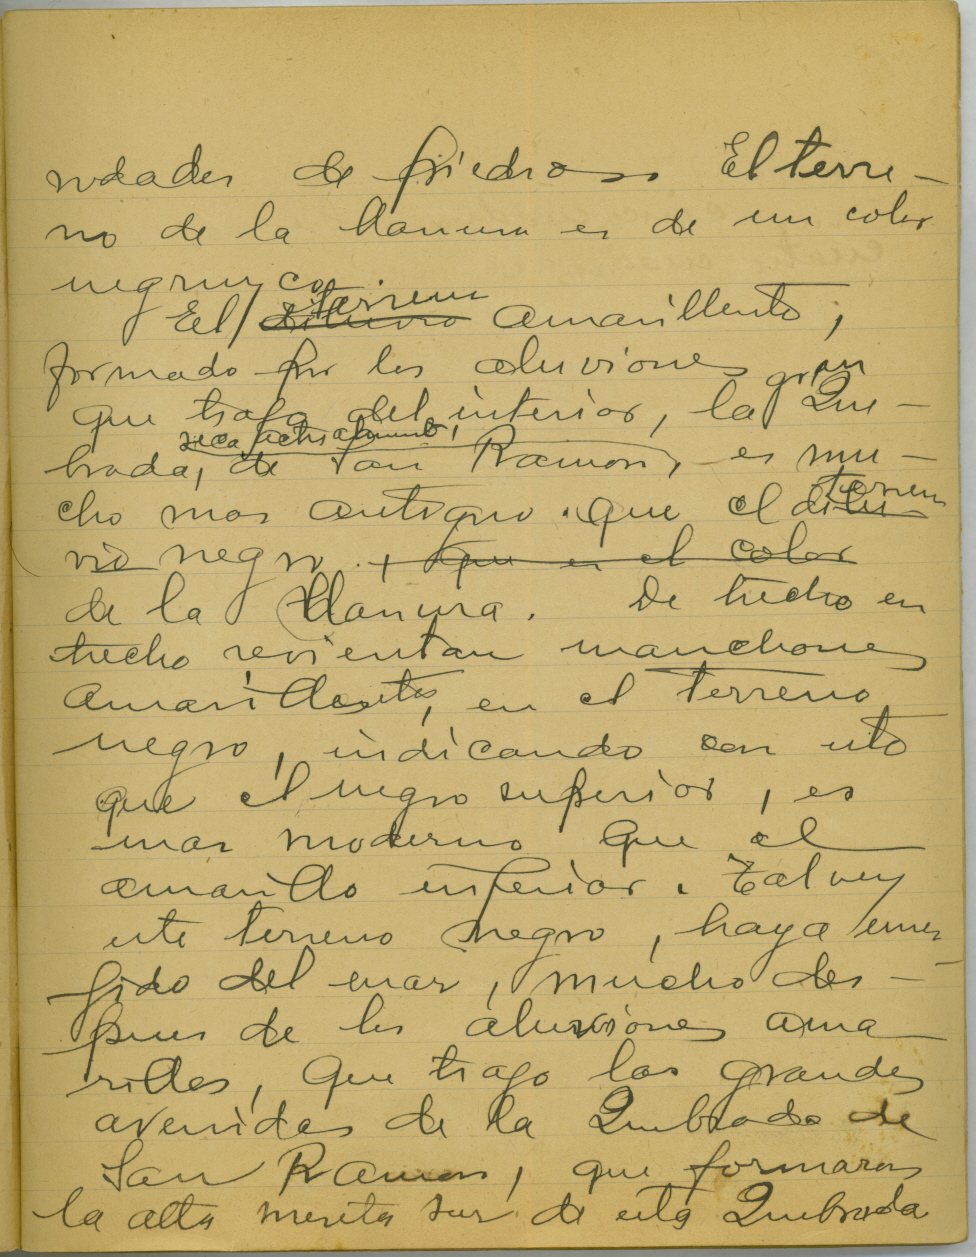 rodados de piedras. El terre-
no de la llanura es de un color
negruzco.
El terreno diluvio amarillento,
formado por los aluviones gran
que trajo del interior, la Que-
seca actualmente,
brada, de San Ramon, es mu-
cho mas antiguo que el dilu terreno
vio negro. , que es el color
de la llanura. De trecho en
trecho revientan manchones
amarillentos, en el terreno
negro, indicando con esto
que el negro superior, es
mas moderno que el
amarillo inferior. Talvez
este terreno negro, haya emer-
jido del mar, mucho des-
pues de los aluviones ama
rillos, que trajo las grandes
avenidas de la Quebrada de
San Ramon, que formaron
la alta meseta sur de esta Quebrada